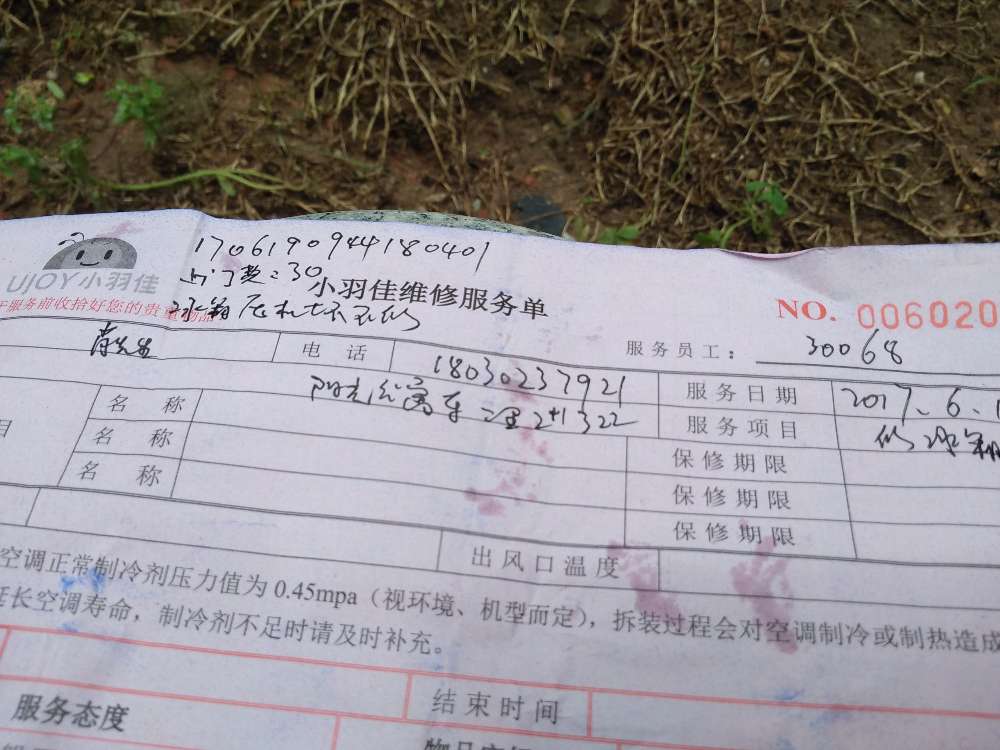 1706190944180401
上门费:30
UJOY小羽佳
小羽佳维修服务单
NO. 006020
服务前收拾好您的贵重物品
服务员工: 30068
电话 18030237921 服务日期 2017.6.1
名称 服务项目
名称 保修期限
名称 保修期限
保修期限
出风口温度
空调正常制冷剂压力值为0.45mpa(视环境、机型而定),拆装过程会对空调制冷或制热造成
延长空调寿命,制冷剂不足时请及时补充。
结束时间
服务态度